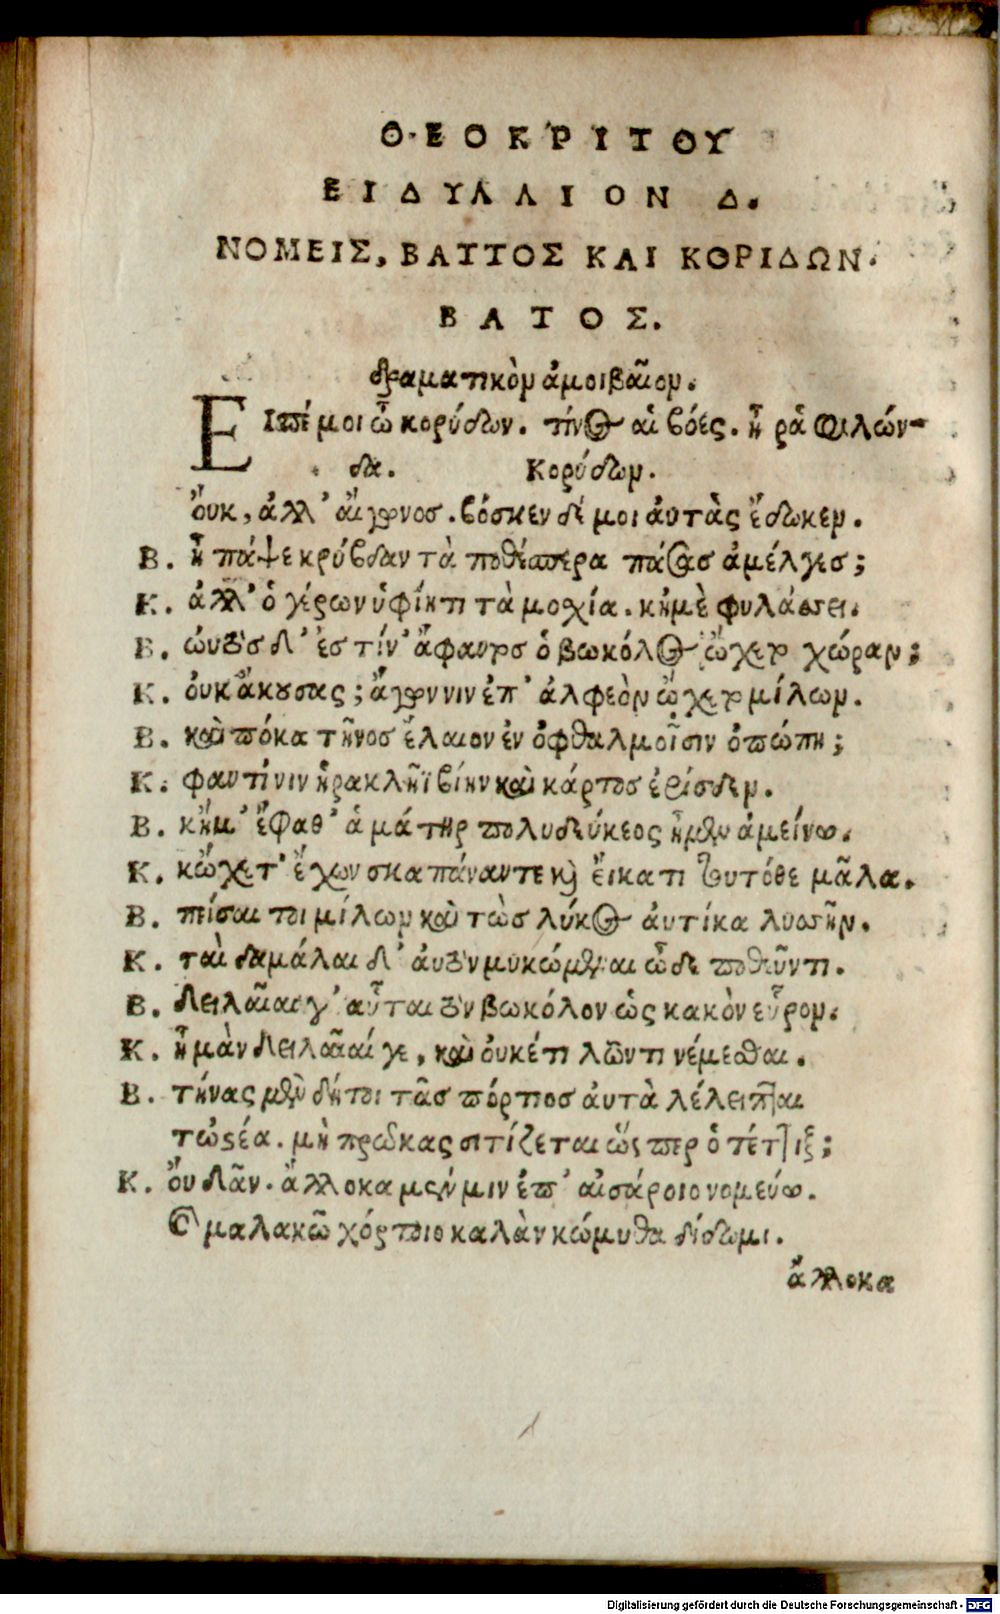 ΘΕΟΚΡΙΤΟΥ
ΕΙΔΥΛΛΙΟΝ Δ.
ΝΟΜΕΙΣ, ΒΑΤΤΟΣ ΚΑΙ ΚΟΡΙΔΩΝ.
ΒΑΤΟΣ.
δραματικὸν ἀμοιβαῖον.
ΕΙπέ μοι ὦ κορύδων. τίνος αἱ βόες. ἦ ῥὰ Φιλών-
δα. Κορύδων.
ὄυκ, ἀλλ' αἴγωνος. βόσκεν δέ μοι ἀυτὰς ἔδωκεν.
Β. ἦ πάψε κρύβδαν τὰ ποθέσπερα πάσας ἀμέλγεις;
Κ. ἀλλ' ὁ γέρων ὑφίητι τὰ μοχία. κἠμὲ φυλάσσει.
Β. ὡυτὸς δ' ἐς τίν' ἄφαντος ὁ βωκόλος ᾤχετο χώραν;
Κ. ὀυκ ἄκουσας; ἄγων νιν ἐπ' ἀλφεὸν ᾤχετο μίλων.
Β. καὶ πόκα τῆνος ἔλαιον ἐν ὀφθαλμοῖσιν ὀπώπη;
Κ. φαντί νιν ἡρακλῆϊ βίην καὶ κάρτος ἐρίσδεν.
Β. κἤμ' ἔφαθ' ἁ μάτηρ πολυδεύκεος ἦμεν ἀμείνω.
Κ. κᾤχετ' ἔχων σκαπάναν τε καὶ ἔικατι τουτόθε μᾶλα.
Β. πείσαι τοι μίλων καὶ τὼς λύκος ἀυτίκα λυσσῆν.
Κ. ταὶ δαμάλαι δ' ἀυτὸν μυκώμεναι ὧδε ποθεῦντι.
Β. Δειλαῖαι γ' αὗται τὸν βωκόλον ὡς κακὸν εὗρον.
Κ. ἦ μὰν Δειλαῖαί γε, καὶ ὀυκέτι λῶντι νέμεσθαι.
Β. τήνας μὲν δή τοι τᾶς πόρτιος ἀυτὰ λέλειπται
τὠστέα. μὴ πρῶκας σιτίζεται ὥς περ ὁ τέττιξ;
Κ. ὄυ Δᾶν. ἄλλοκα μέν μιν ἐπ' αἰσάροιο νομεύω.
καὶ μαλακῶ χόρτοιο καλὰν κώμυθα δίδωμι.
ἄλλοκα
Digitalisierung gefördert durch die Deutsche Forschungsgemeinschaft - DFG